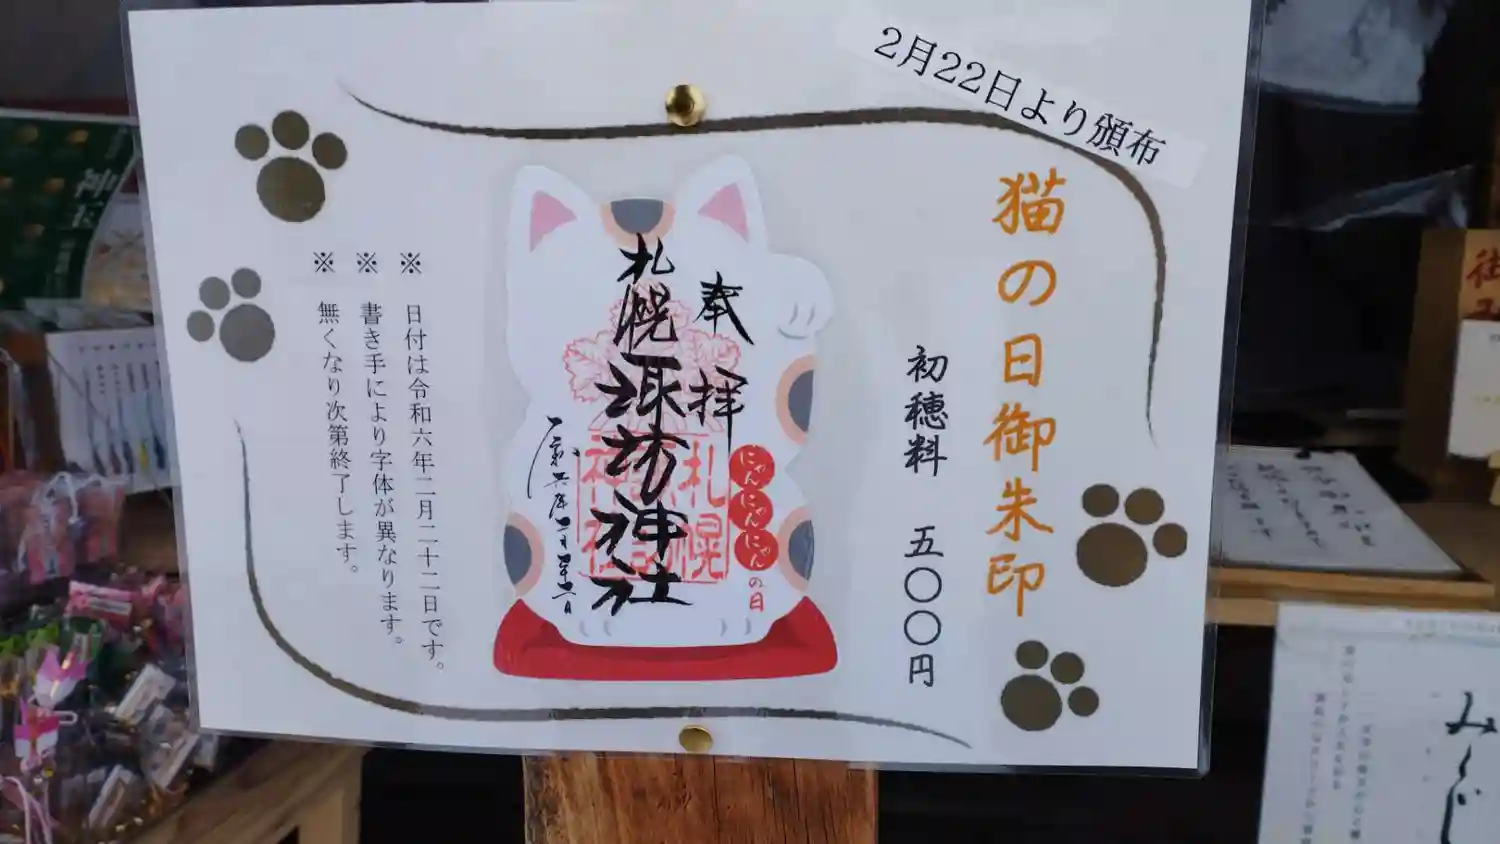 2月22日より頒布
猫の日御朱印
初穂料 五〇〇円
奉拝
札幌諏訪神社
にゃんにゃんにゃんの日
札幌
諏訪
神社
※ 日付は令和六年二月二十二日です。
※ 書き手により字体が異なります。
※ 無くなり次第終了します。